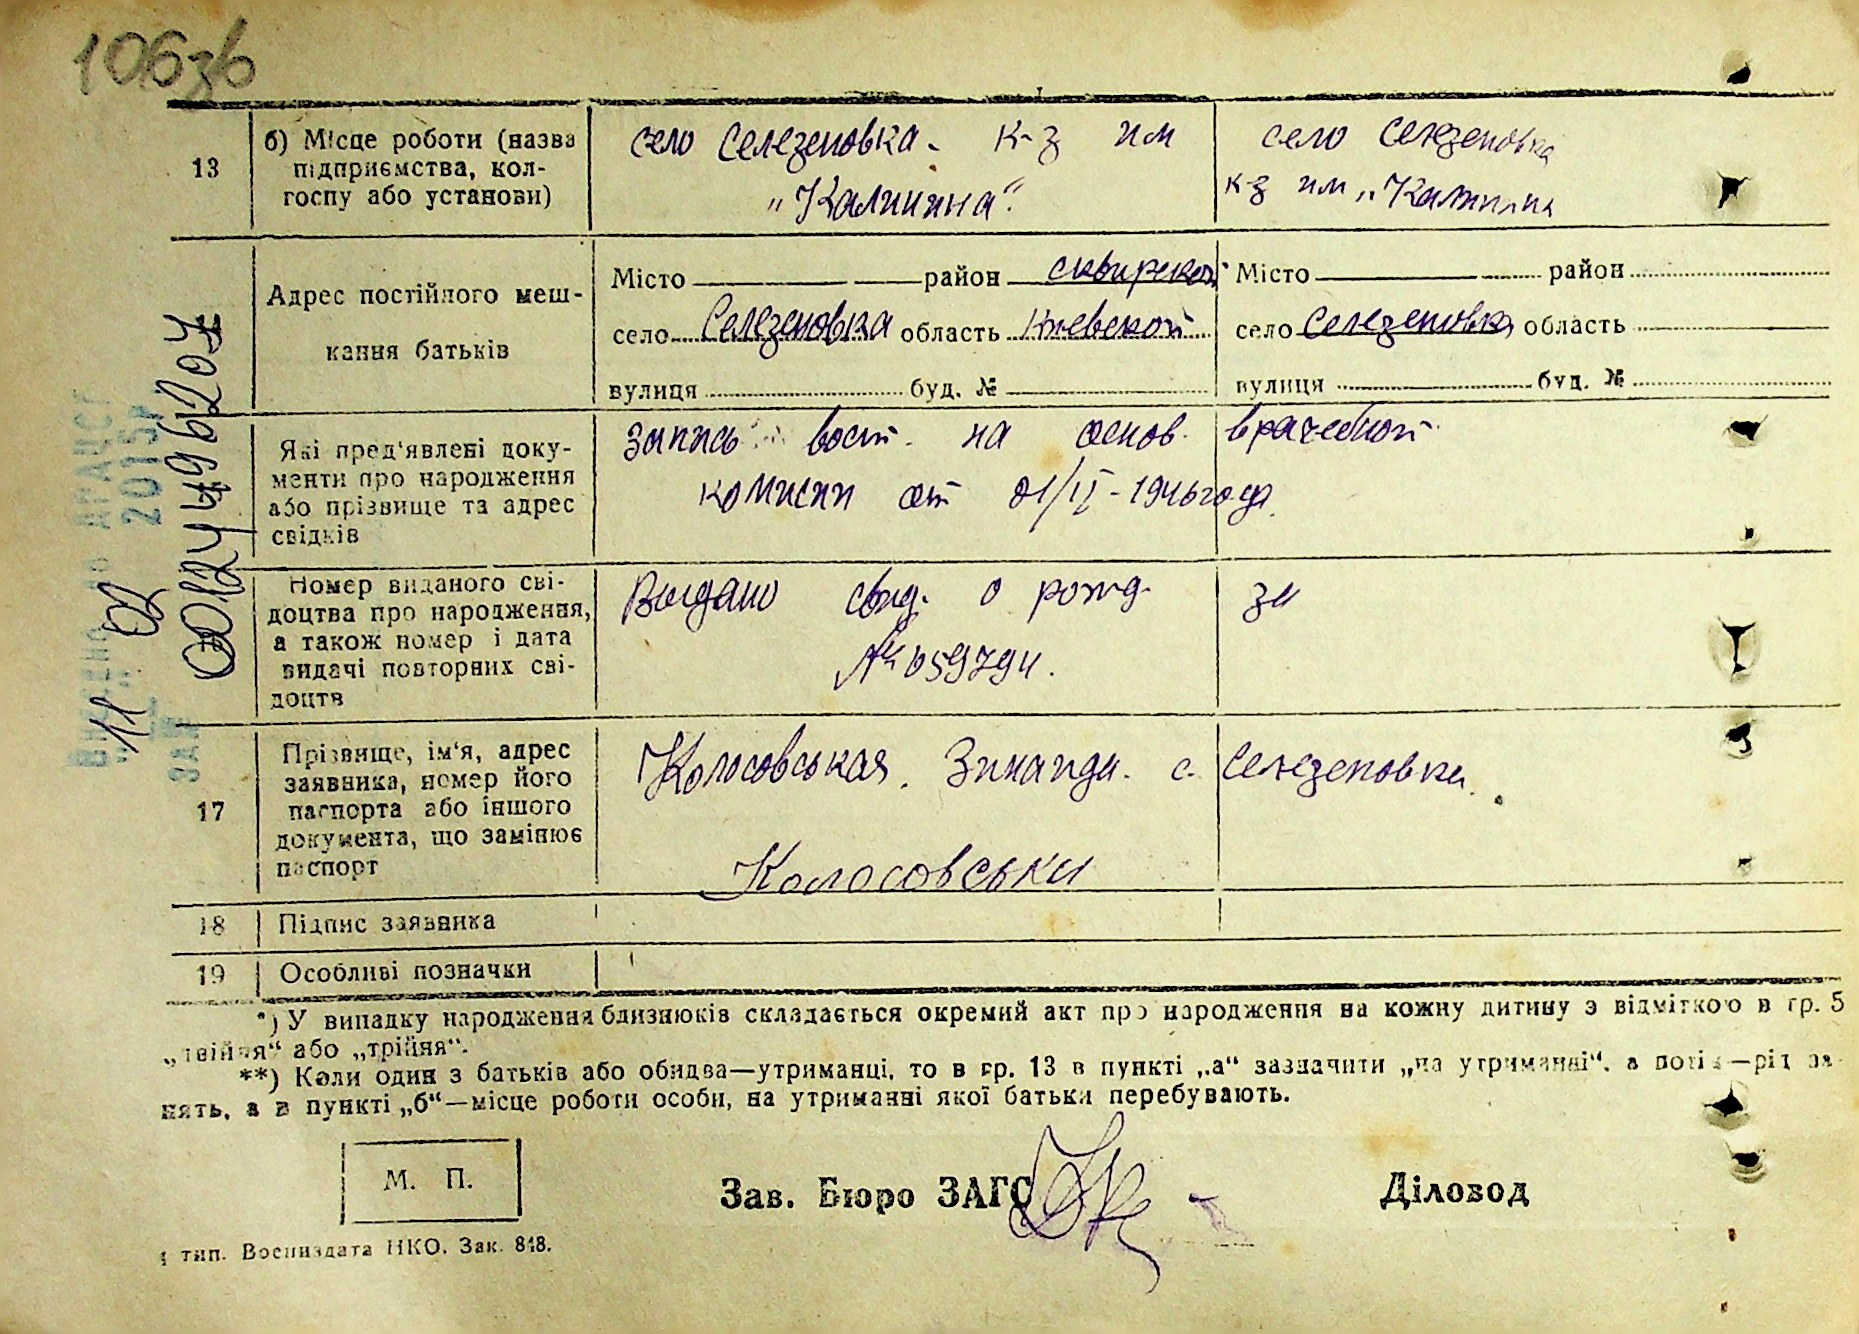 106зв
13
б) Місце роботи (назва
підприємства, кол-
госпу або установи)
село Селезеновка. к-з им
„Калинина".
село Селезеновка
к-з им „Калинина
Адрес постійного меш-
кання батьків
Місто район сквирской
село Селезеновка область Киевской
вулиця буд. №
Місто район
село Селезеновка область
вулиця буд. №
Які пред'явлені доку-
менти про народження
або прізвище та адрес
свідків
запись вост. на основ. врачебной
комисии от 21/II-1946 года.
Номер виданого сві-
доцтва про народження,
а також номер і дата
видачі повторних сві-
доцтв
Выдано свид. о рожд. за
№ 059794.
17
Прізвище, ім'я, адрес
заявника, номер його
паспорта або іншого
документа, що замінює
паспорт
Колосовськая. Зинаида. с. Селезеновка.
Колосовська
18 Підпис заявника
19 Особливі позначки
*) У випадку народження близнюків складається окремий акт про народження на кожну дитину з відміткою в гр. 5
„двійня" або „трійня".
**) Коли один з батьків або обидва—утриманці, то в гр. 13 в пункті „а" зазначити „на утриманні", а потім—рід за-
нять, а в пункті „б"—місце роботи особи, на утриманні якої батьки перебувають.
М. П.
Зав. Бюро ЗАГС
Діловод
1 тип. Воениздата НКО. Зак. 848.
11 02
00124496207
2015